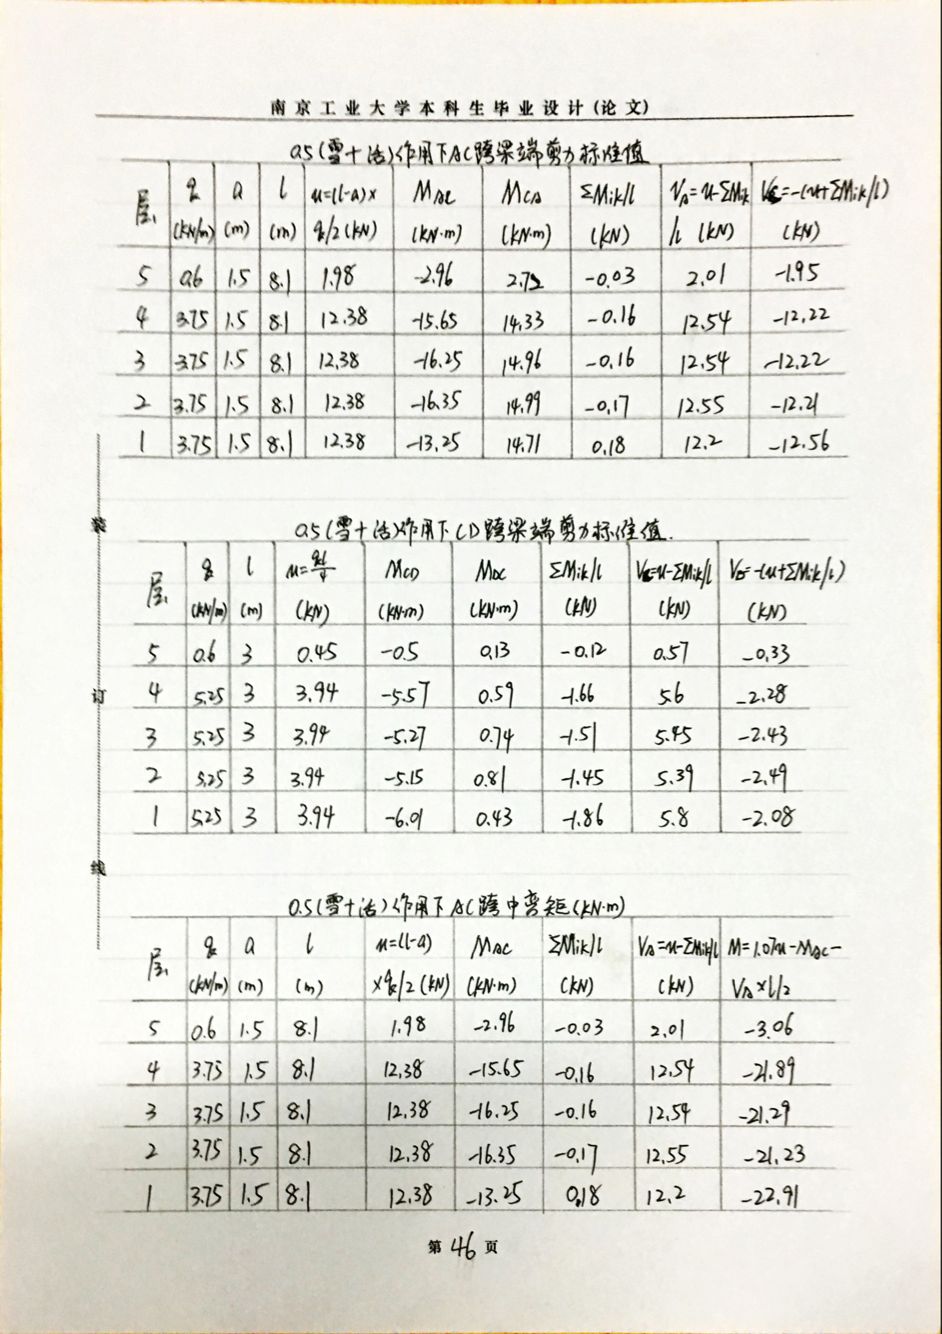 南京工业大学本科生毕业设计(论文)
0.5(雪+活)作用下AC跨梁端剪力标准值
层 q a l u=(l-a)× MAC MCA ΣMik/l VA=u-ΣMik VC=-(u+ΣMik/l)
(kN/m) (m) (m) q/2(kN) (kN·m) (kN·m) (kN) /l (kN) (kN)
5 0.6 1.5 8.1 1.98 -2.96 2.72 -0.03 2.01 -1.95
4 3.75 1.5 8.1 12.38 -15.65 14.33 -0.16 12.54 -12.22
3 3.75 1.5 8.1 12.38 -16.25 14.96 -0.16 12.54 -12.22
2 3.75 1.5 8.1 12.38 -16.35 14.99 -0.17 12.55 -12.21
1 3.75 1.5 8.1 12.38 -13.25 14.71 0.18 12.2 -12.56
装
0.5(雪+活)作用下CD跨梁端剪力标准值.
层 q l u=ql/4 MCD MDC ΣMik/l VC=u-ΣMik/l VD=-(u+ΣMik/l)
(kN/m) (m) (kN) (kN·m) (kN·m) (kN) (kN) (kN)
5 0.6 3 0.45 -0.5 0.13 -0.12 0.57 -0.33
4 5.25 3 3.94 -5.57 0.59 -1.66 5.6 -2.28
订
3 5.25 3 3.94 -5.27 0.74 -1.51 5.45 -2.43
2 5.25 3 3.94 -5.15 0.81 -1.45 5.39 -2.49
1 5.25 3 3.94 -6.01 0.43 -1.86 5.8 -2.08
线
0.5(雪+活)作用下AC跨中弯矩(kN·m)
层 q a l u=(l-a) MAC ΣMik/l VA=u-ΣMik/l M=1.07u-MAC-
(kN/m) (m) (m) ×q/2(kN) (kN·m) (kN) (kN) VA×l/2
5 0.6 1.5 8.1 1.98 -2.96 -0.03 2.01 -3.06
4 3.75 1.5 8.1 12.38 -15.65 -0.16 12.54 -21.89
3 3.75 1.5 8.1 12.38 -16.25 -0.16 12.54 -21.29
2 3.75 1.5 8.1 12.38 -16.35 -0.17 12.55 -21.23
1 3.75 1.5 8.1 12.38 -13.25 0.18 12.2 -22.91
第46页